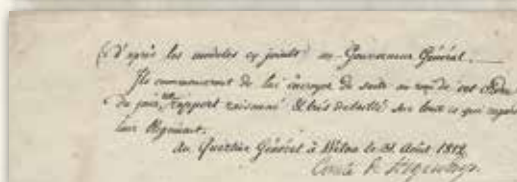 (d'après les modeles cy joints) au Gouverneur Général.
Ils commenceront de lui envoyer de suite au reçu de cet Ordre
du jour, Rapport raisonné & très détaillé sur tout ce qui regarde
leur Régiment.
Au Quartier Général à Wilna le 31. Août 1812.
Comte D.